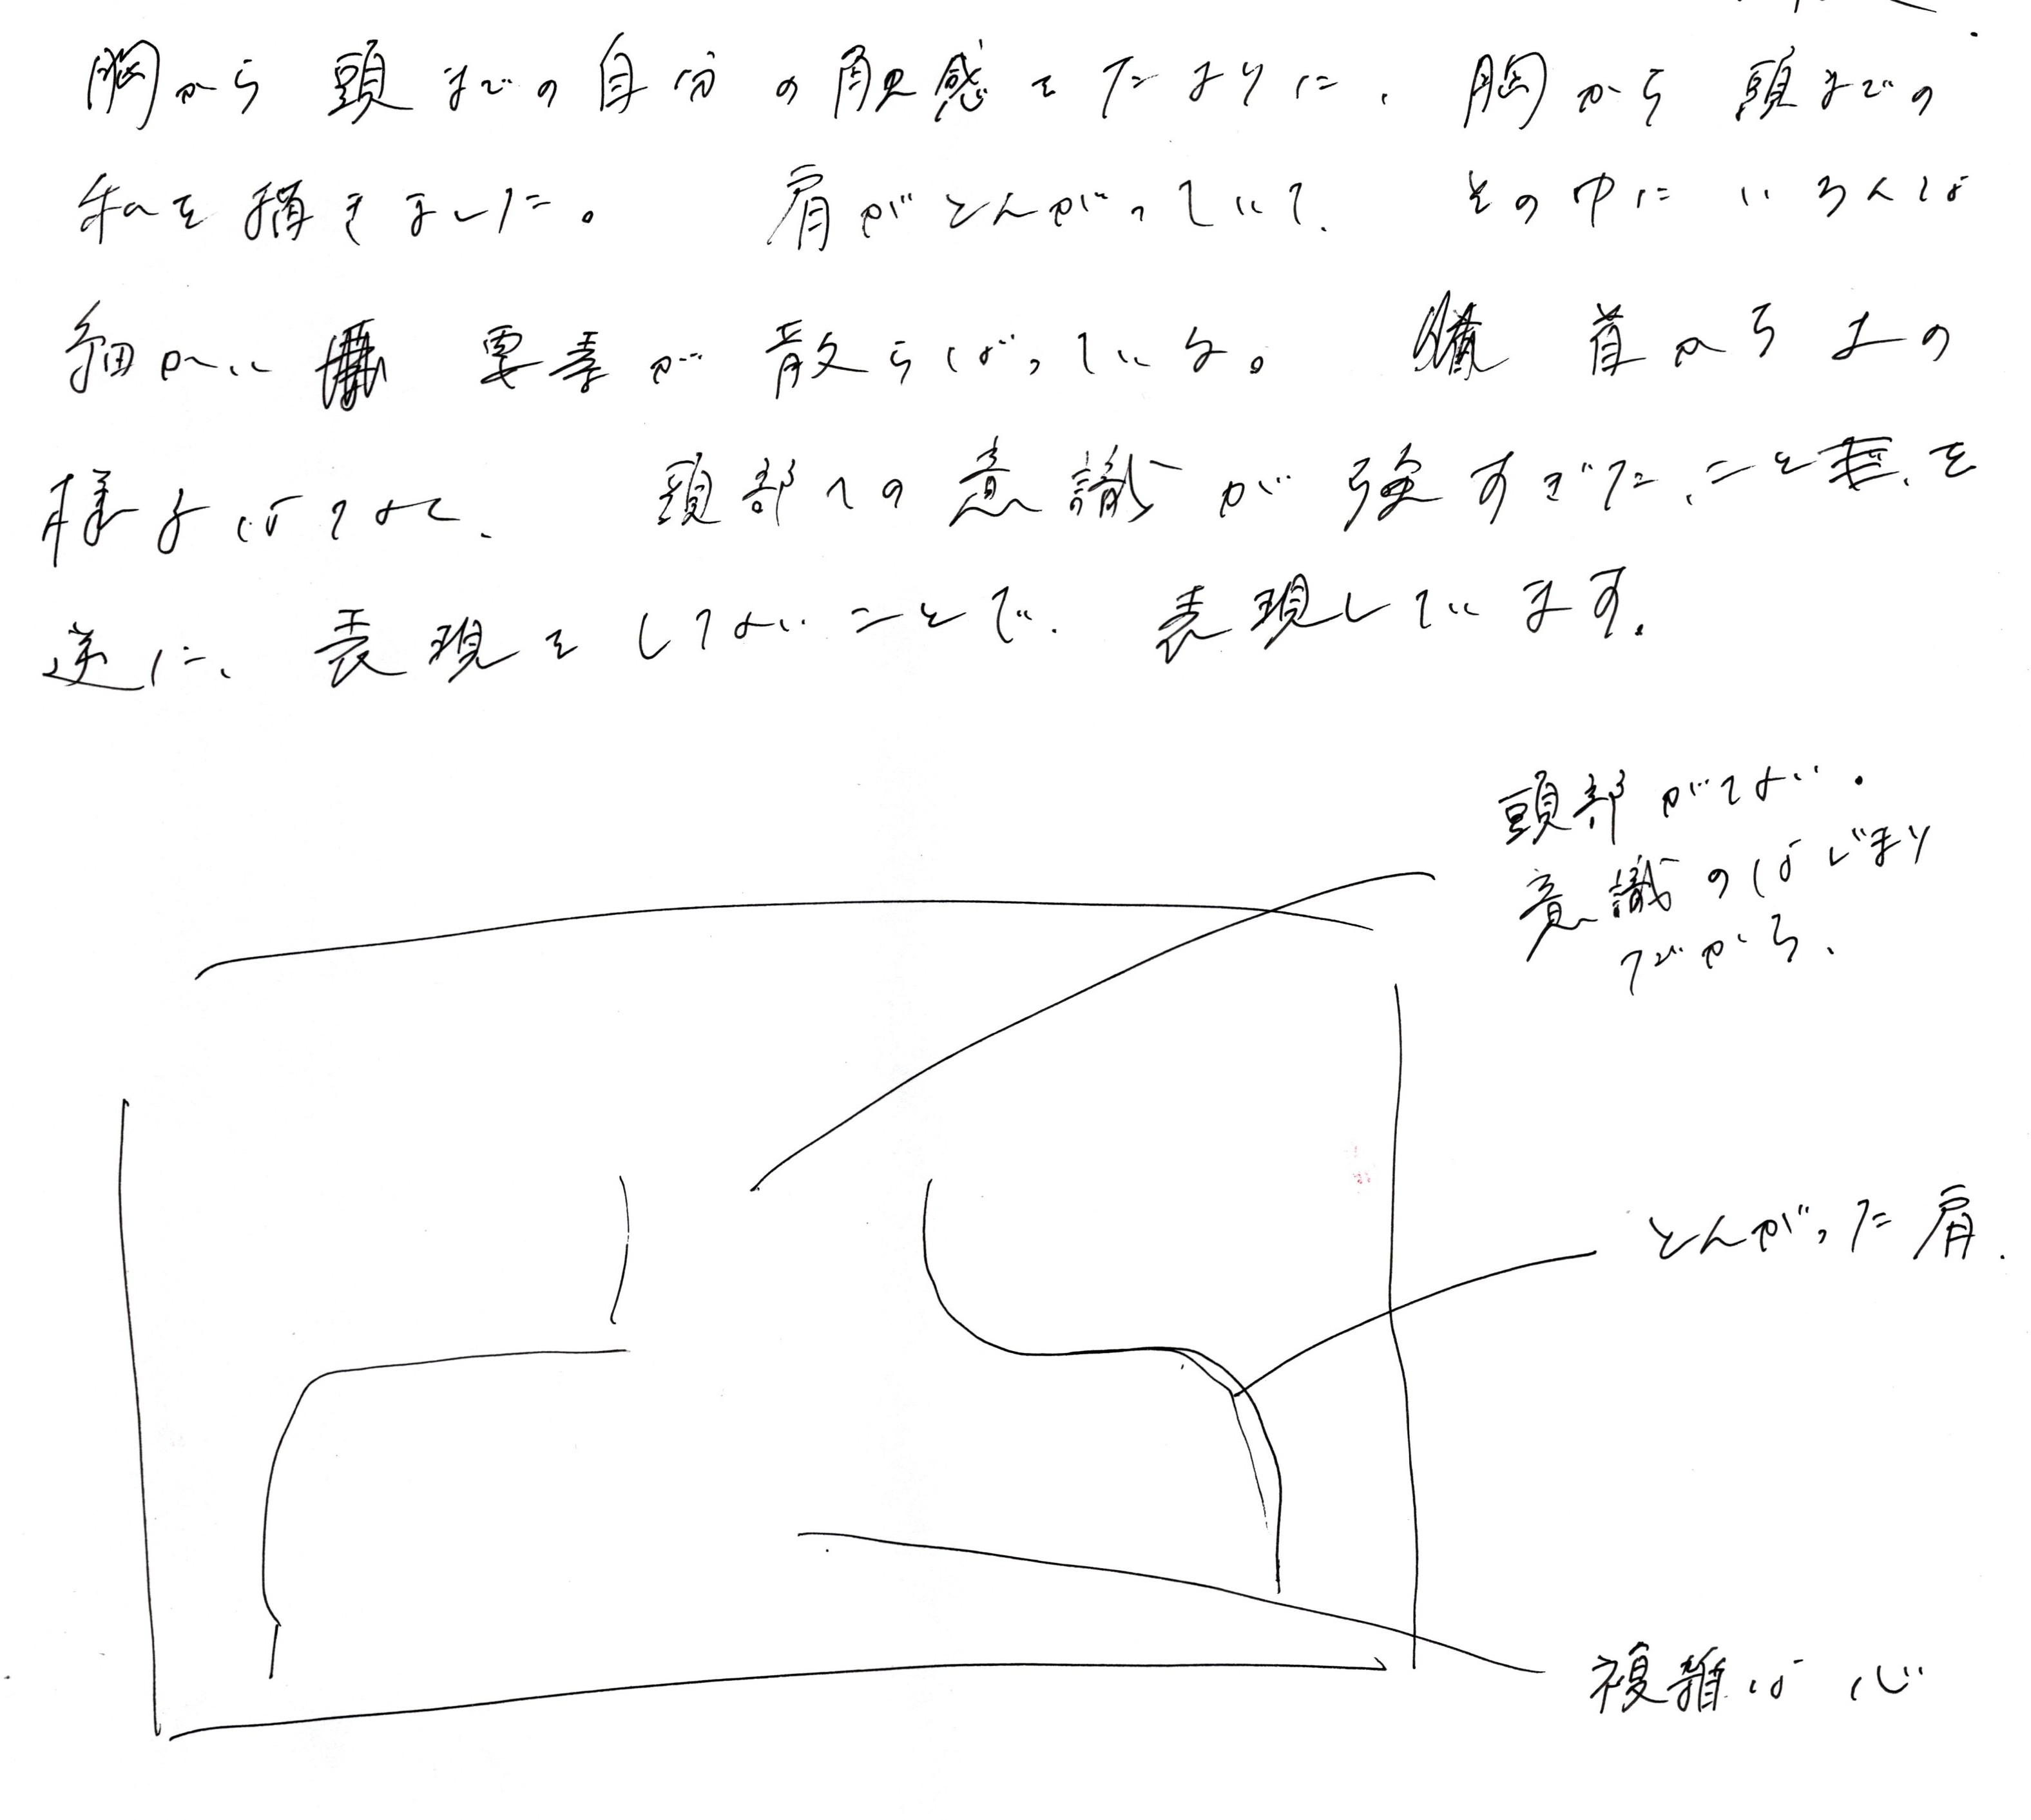 胸から頭までの自分の触感をたよりに、胸から頭までの
私を描きました。肩がとんがっていて、その中にいろんな
細かい要素が散らばっている。首から上の
様子はなく、頭部への意識が強すぎた、ことを
逆に、表現をしてないことで、表現しています。
頭部がない。
意識のはじまり
だから、
とんがった肩.
複雑な心